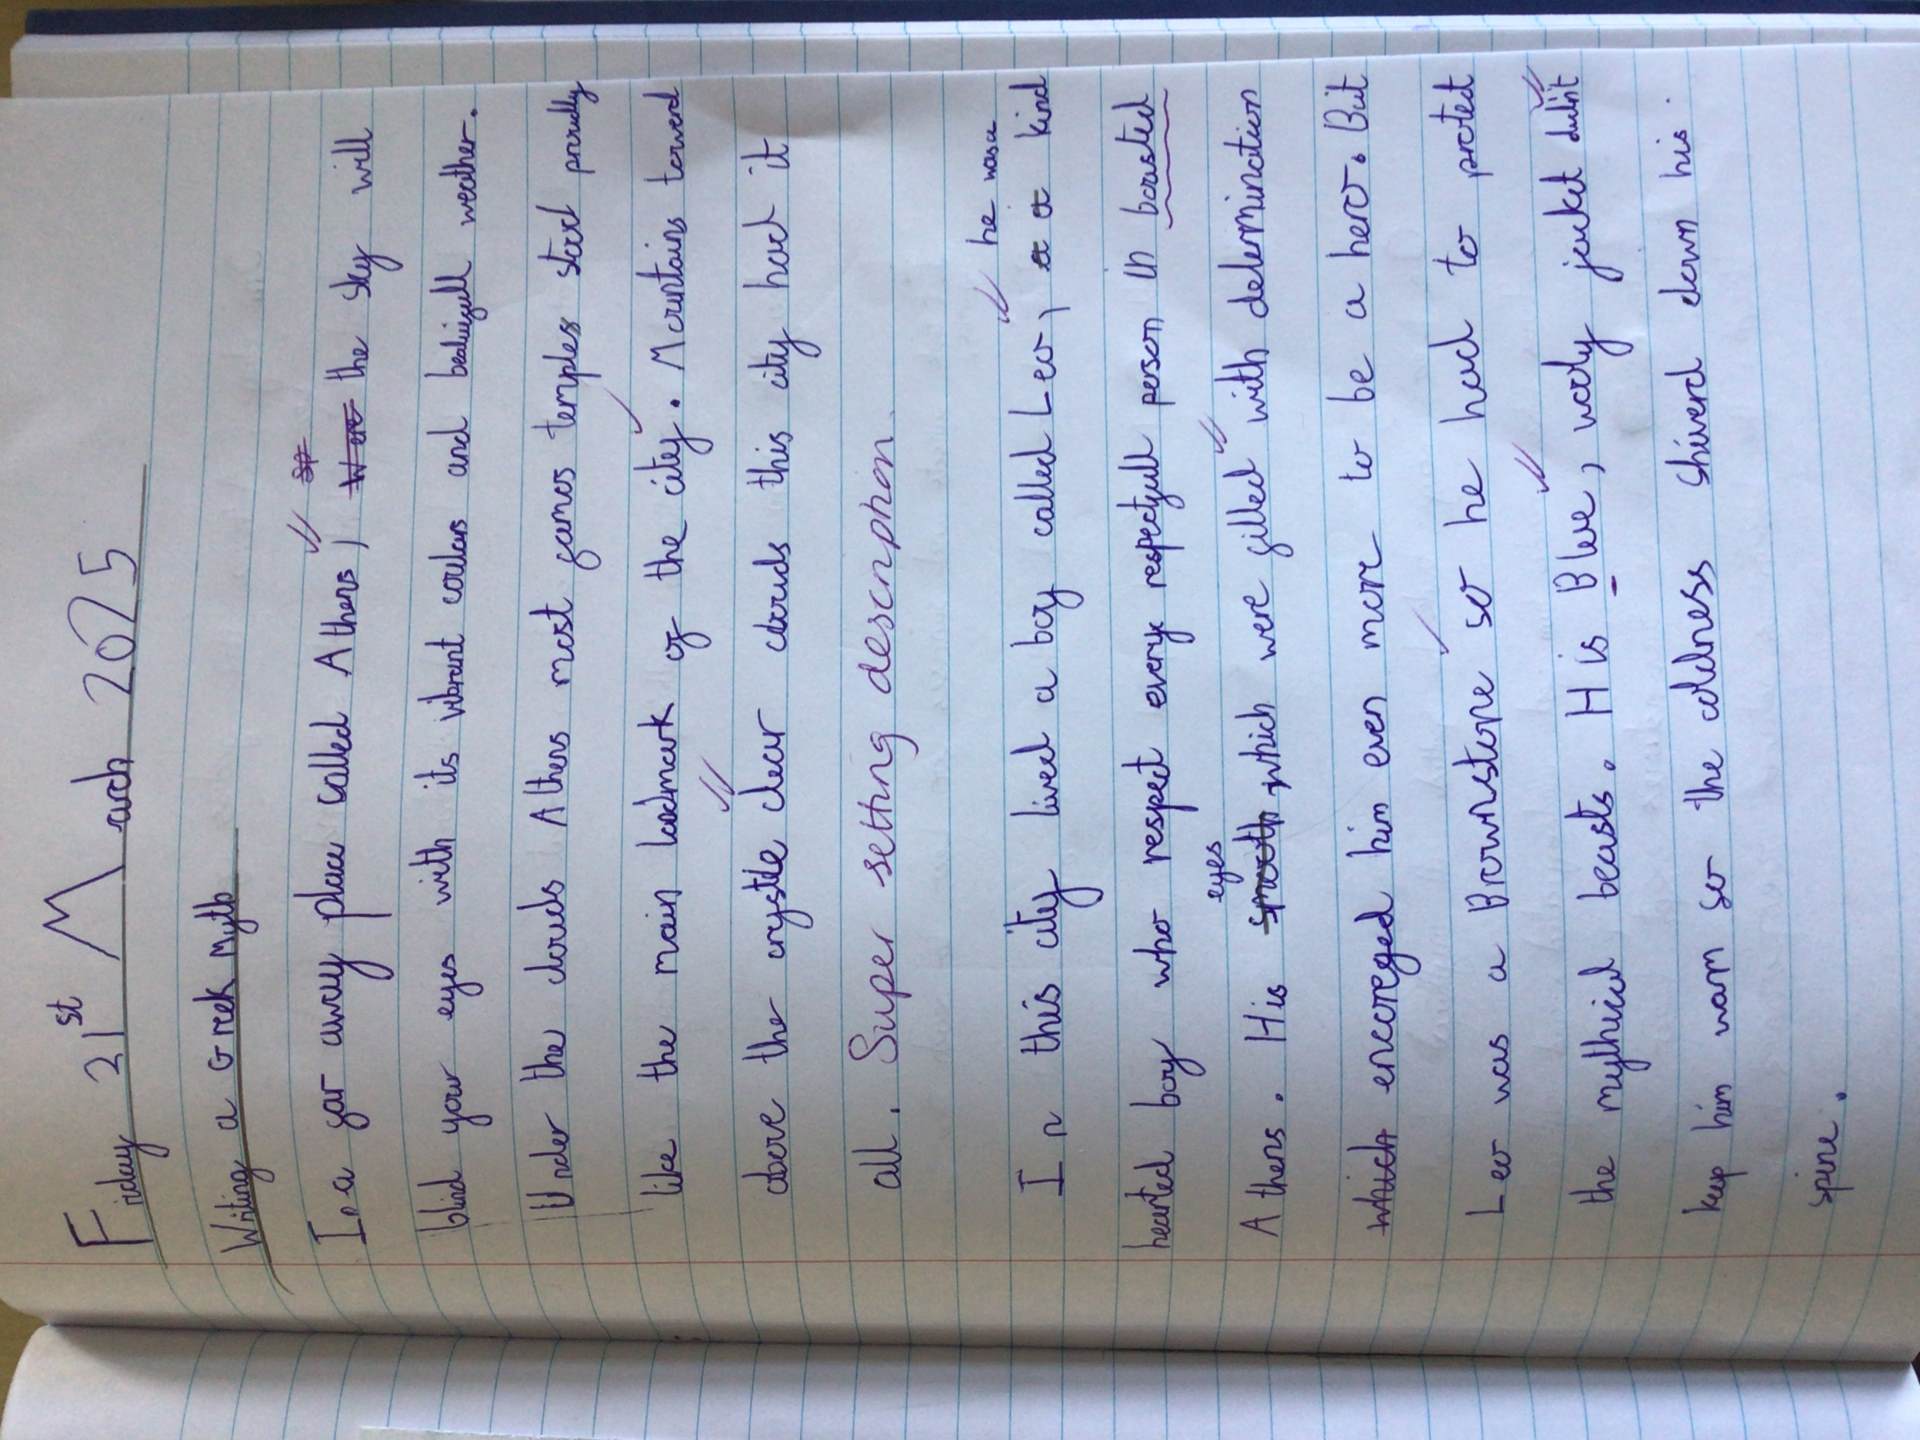 Friday 21st March 2025
Writing a Greek Myth
In a far away place called Athens, the sky will
blind your eyes with its vibrant coulors and beatifull weather.
Under the clouds Athens most famos temples stood proudly
like the main landmark of the city. Mountains towerd
above the crystle clear clouds this city had it
all. Super setting description
he was a
In this city lived a boy called Leo, kind
hearted boy who respect every respectfull person in
eyes
Athens. His smooth which were filled with determination
which encoreged him even more to be a hero. But
Leo was a Brownstone so he had to protect
the mythical beasts. His Blue, wooly jacket didn't
keep him warm so the coldness shiverd down his
spine.